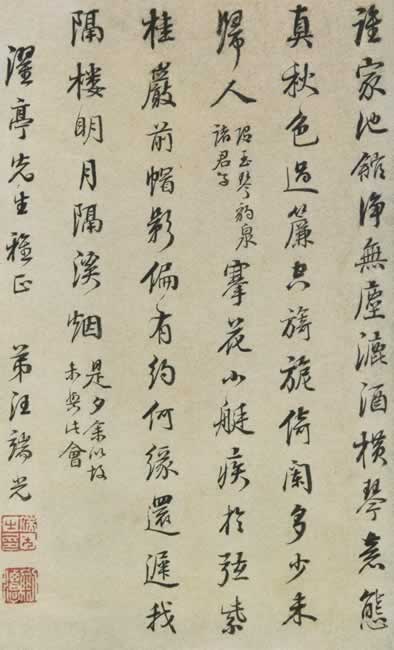 誰家池館淨無塵漉酒橫琴意態
真秋色過簾空旖旎倚闌多少未
歸人
玉琴韵泉
諸君子
搴花小艇疾於弦紫
桂巖前帽影偏有約何緣還遲我
隔楼明月隔溪烟
是夕余以故
未與此會
濯亭先生雅正 弟汪端光